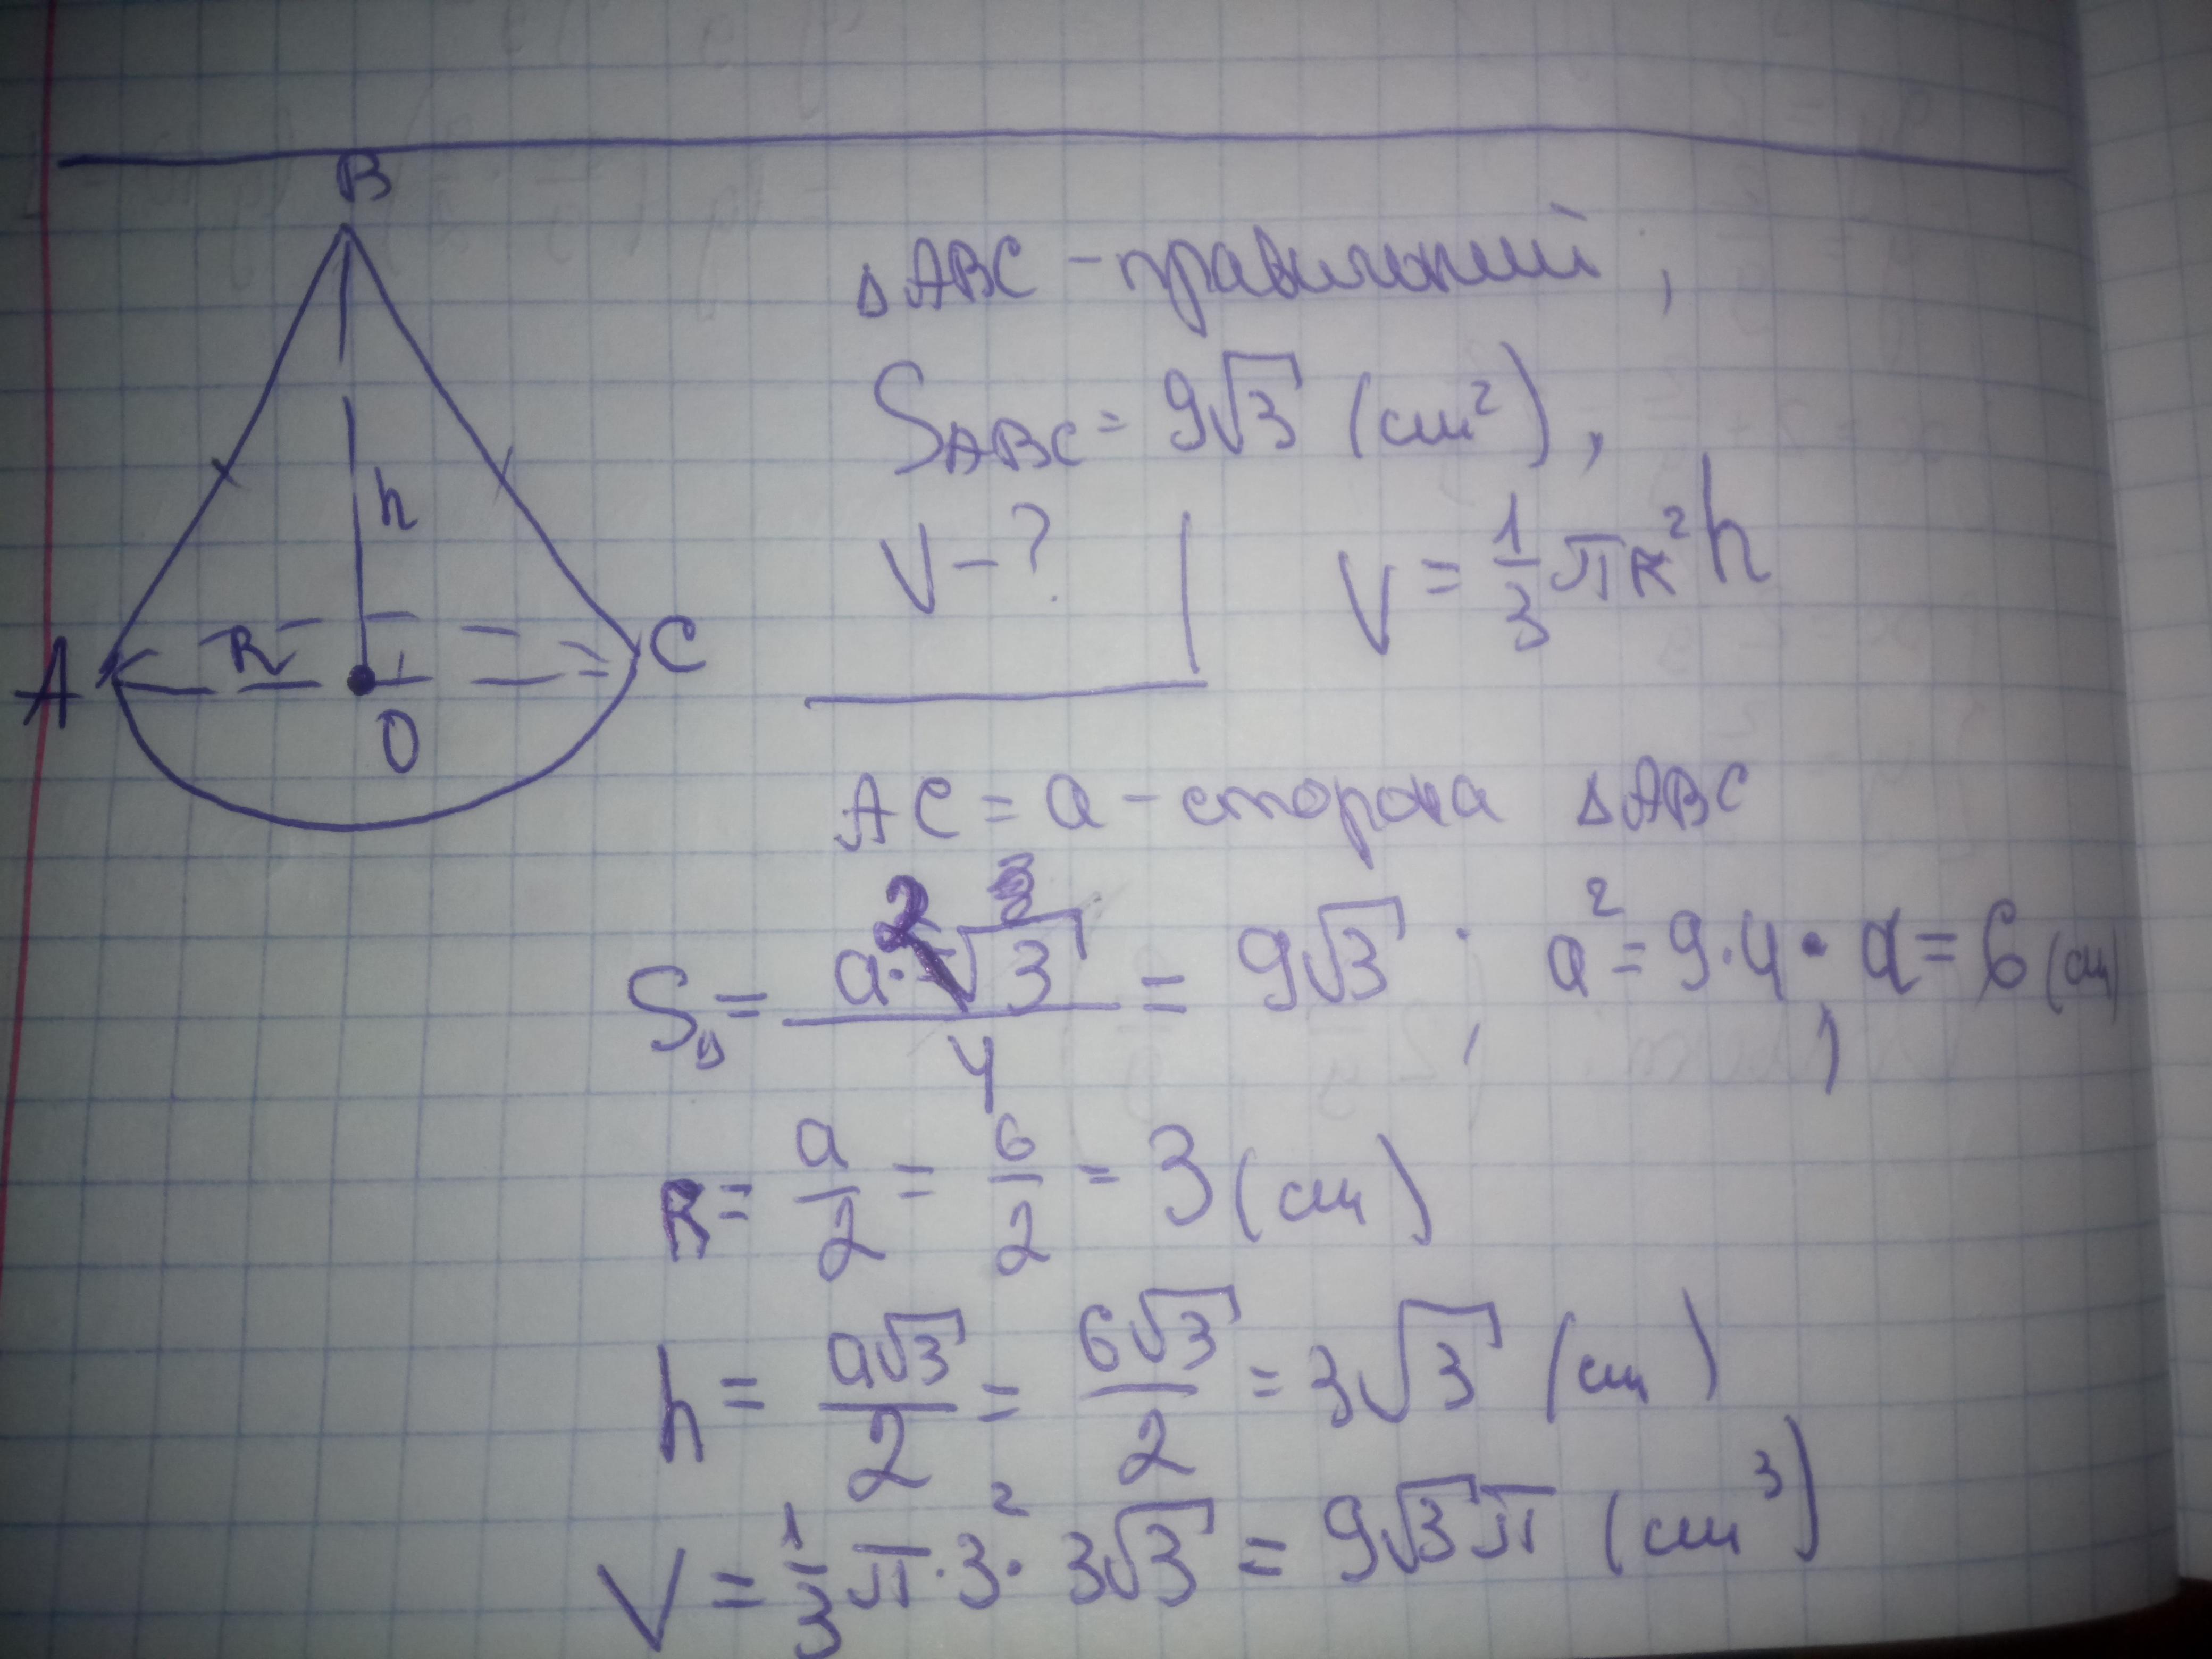 B
△ABC - правильный,
S_ABC = 9√3 (см²),
h
V - ?
V = 1/3 πR²h
R
A
C
O
AC = a - сторона △ABC
S_△ = a²√3/4 = 9√3; a² = 9·4, a = 6 (см)
R = a/2 = 6/2 = 3 (см)
h = a√3/2 = 6√3/2 = 3√3 (см)
V = 1/3 π·3²·3√3 = 9√3π (см³)